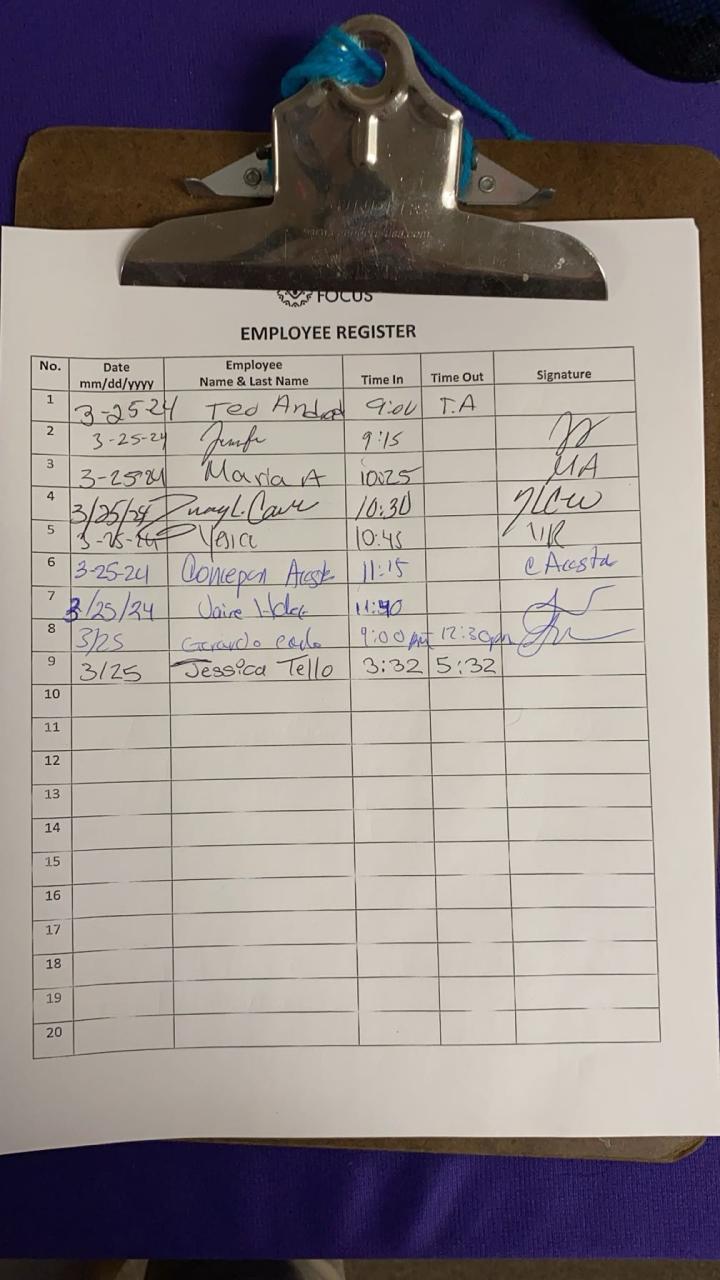 FOCUS
EMPLOYEE REGISTER
No. Date mm/dd/yyyy Employee Name & Last Name Time In Time Out Signature
1 3-25-24 Ted T.A
2 3-25-24 9:15
3 3-25-24 Maria A 10:25 MA
4 3/25/24 10:30
5 3-25-24 10:45 VR
6 3-25-24 11:15 C Acosta
7 3/25/24 11:40
8 3/25 Gerardo 9:00 pm 12:30pm
9 3/25 Jessica Tello 3:32 5:32
10
11
12
13
14
15
16
17
18
19
20